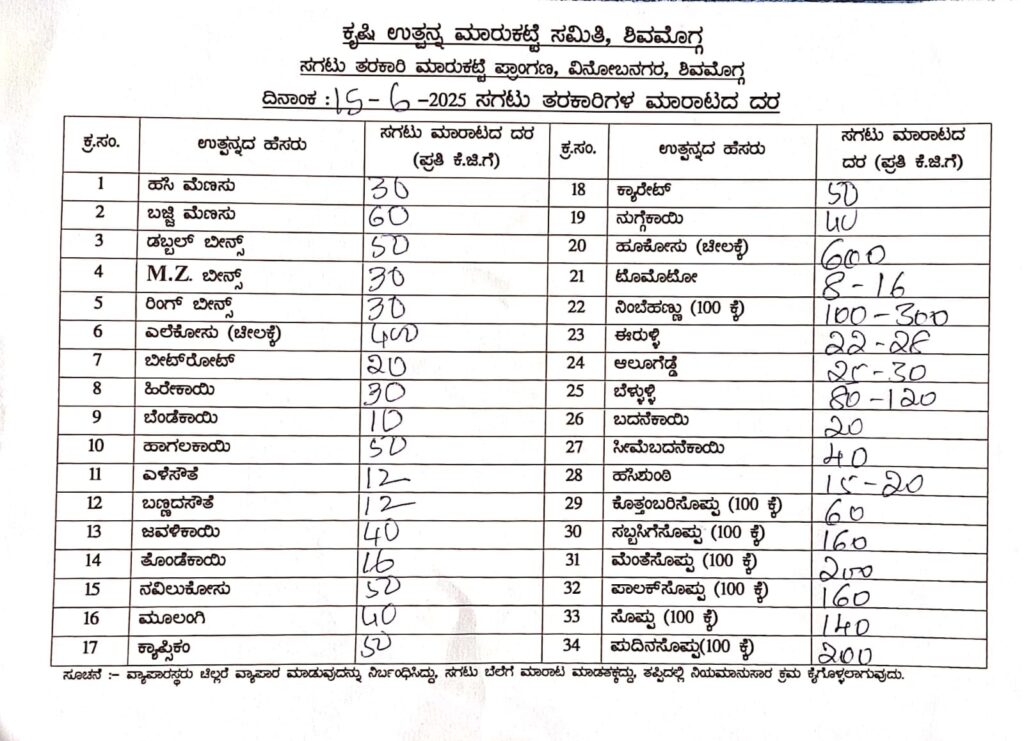 ಕೃಷಿ ಉತ್ಪನ್ನ ಮಾರುಕಟ್ಟೆ ಸಮಿತಿ, ಶಿವಮೊಗ್ಗ
ಸಗಟು ತರಕಾರಿ ಮಾರುಕಟ್ಟೆ ಪ್ರಾಂಗಣ, ವಿನೋಬನಗರ, ಶಿವಮೊಗ್ಗ
ದಿನಾಂಕ : 15-6-2025 ಸಗಟು ತರಕಾರಿಗಳ ಮಾರಾಟದ ದರ
ಕ್ರ.ಸಂ. ಉತ್ಪನ್ನದ ಹೆಸರು ಸಗಟು ಮಾರಾಟದ ದರ (ಪ್ರತಿ ಕೆ.ಜಿ.ಗೆ) ಕ್ರ.ಸಂ. ಉತ್ಪನ್ನದ ಹೆಸರು ಸಗಟು ಮಾರಾಟದ ದರ (ಪ್ರತಿ ಕೆ.ಜಿ.ಗೆ)
1 ಹಸಿ ಮೆಣಸು 30 18 ಕ್ಯಾರೇಟ್ 50
2 ಬಜ್ಜಿ ಮೆಣಸು 60 19 ನುಗ್ಗೆಕಾಯಿ 40
3 ಡಬ್ಬಲ್ ಬೀನ್ಸ್ 50 20 ಹೂಕೋಸು (ಚೀಲಕ್ಕೆ) 600
4 M.Z. ಬೀನ್ಸ್ 30 21 ಟೊಮೊಟೋ 8-16
5 ರಿಂಗ್ ಬೀನ್ಸ್ 30 22 ನಿಂಬೆಹಣ್ಣು (100 ಕ್ಕೆ) 100-300
6 ಎಲೆಕೋಸು (ಚೀಲಕ್ಕೆ) 400 23 ಈರುಳ್ಳಿ 22-28
7 ಬೀಟ್‌ರೋಟ್ 20 24 ಆಲೂಗೆಡ್ಡೆ 25-30
8 ಹಿರೇಕಾಯಿ 30 25 ಬೆಳ್ಳುಳ್ಳಿ 80-120
9 ಬೆಂಡೆಕಾಯಿ 10 26 ಬದನೆಕಾಯಿ 20
10 ಹಾಗಲಕಾಯಿ 50 27 ಸೀಮೆಬದನೆಕಾಯಿ 40
11 ಎಳೆಸೌತೆ 12 28 ಹಸಿಶುಂಠಿ 15-20
12 ಬಣ್ಣದಸೌತೆ 12 29 ಕೊತ್ತಂಬರಿಸೊಪ್ಪು (100 ಕ್ಕೆ) 60
13 ಜವಳಿಕಾಯಿ 40 30 ಸಬ್ಬಸಿಗೆಸೊಪ್ಪು (100 ಕ್ಕೆ) 160
14 ತೊಂಡೆಕಾಯಿ 16 31 ಮೆಂತೆಸೊಪ್ಪು (100 ಕ್ಕೆ) 200
15 ನವಿಲುಕೋಸು 50 32 ಪಾಲಕ್‌ಸೊಪ್ಪು (100 ಕ್ಕೆ) 160
16 ಮೂಲಂಗಿ 40 33 ಸೊಪ್ಪು (100 ಕ್ಕೆ) 140
17 ಕ್ಯಾಪ್ಸಿಕಂ 50 34 ಪುದಿನಸೊಪ್ಪು(100 ಕ್ಕೆ) 200
ಸೂಚನೆ :- ವ್ಯಾಪಾರಸ್ಥರು ಚಿಲ್ಲರೆ ವ್ಯಾಪಾರ ಮಾಡುವುದನ್ನು ನಿರ್ಬಂಧಿಸಿದ್ದು, ಸಗಟು ಬೆಲೆಗೆ ಮಾರಾಟ ಮಾಡತಕ್ಕದ್ದು, ತಪ್ಪಿದಲ್ಲಿ ನಿಯಮಾನುಸಾರ ಕ್ರಮ ಕೈಗೊಳ್ಳಲಾಗುವುದು.